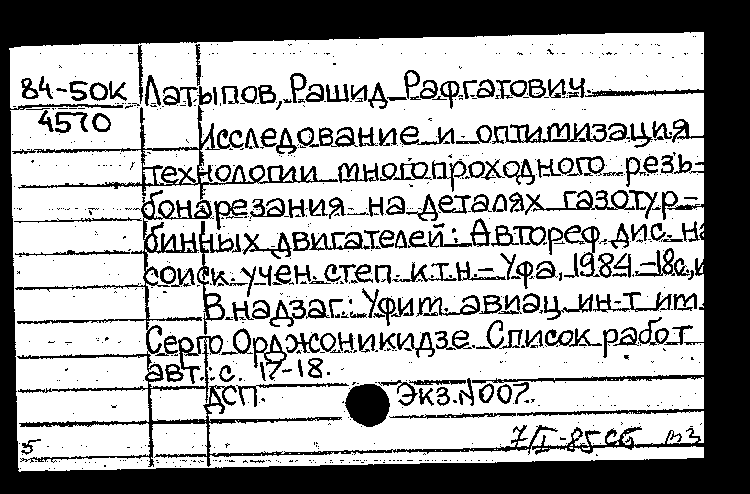 84-50к Латыпов, Рашид Рафгатович.
4570
Исследование и оптимизация
технологии многопроходного резь-
бонарезания на деталях газотур-
бинных двигателей: Автореф. дис. на
соиск. учен. степ. к.т.н. - Уфа, 1984. - 18с.,и
В надзаг.: Уфим. авиац. ин-т им.
Серго Орджоникидзе. Список работ
авт.: с. 17-18.
ДСП. Экз. №007.
5 7/I-85 сб